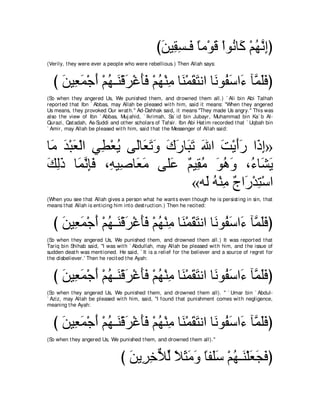 (إِنَّهُمْ كَانُواْ قَوْماً فَـسِقِينَ)
(Verily, they were ever a people who were rebellious.) Then Allah says:
(فَلَمَّآ ءَاسَفُونَا انتَقَمْنَا مِنْهُمْ فَأَغْرَقْنَـهُمْ أَجْمَعِينَ)
(So when they angered Us, We punished them, and drowned them all.) `Ali bin Abi Talhah
reported that Ibn `Abbas, may Allah be pleased with him, said it means: "When they angered
Us means, they provoked Our wrath." Ad-Dahhak said, it means "They made Us angry." This was
also the view of Ibn `Abbas, Mujahid, `Ikrimah, Sa`id bin Jubayr, Muhammad bin Ka`b Al-
Qurazi, Qatadah, As-Suddi and other scholars of Tafsir. Ibn Abi Hatim recorded that `Uqbah bin
`Amir, may Allah be pleased with him, said that the Messenger of Allah said:
«إِذَا رَأَيْتَ اللهَ تَبَارَكَ وَتَعَالَى يُعْطِي الْعَبْدَ مَا
يَشَاءُ، وَهُوَ مُقِيمٌ عَلَى مَعَاصِيهِ، فَإِنَّمَا ذَلِكَ
اسْتِدْرَاجٌ مِنْهُ لَه»
(When you see that Allah gives a person what he wants even though he is persisting in sin, that
means that Allah is enticing him into destruction.) Then he recited:
(فَلَمَّآ ءَاسَفُونَا انتَقَمْنَا مِنْهُمْ فَأَغْرَقْنَـهُمْ أَجْمَعِينَ)
(So when they angered Us, We punished them, and drowned them all.) It was reported that
Tariq bin Shihab said, "I was with `Abdullah, may Allah be pleased with him, and the issue of
sudden death was mentioned. He said, `It is a relief for the believer and a source of regret for
the disbeliever.' Then he recited the Ayah:
(فَلَمَّآ ءَاسَفُونَا انتَقَمْنَا مِنْهُمْ فَأَغْرَقْنَـهُمْ أَجْمَعِينَ)
(So when they angered Us, We punished them, and drowned them all). " `Umar bin `Abdul-
`Aziz, may Allah be pleased with him, said, "I found that punishment comes with negligence,
meaning the Ayah:
(فَلَمَّآ ءَاسَفُونَا انتَقَمْنَا مِنْهُمْ فَأَغْرَقْنَـهُمْ أَجْمَعِينَ)
(So when they angered Us, We punished them, and drowned them all)."
(فَجَعَلْنَـهُمْ سَلَفاً وَمَثَلاً لِّلاٌّخِرِينَ)